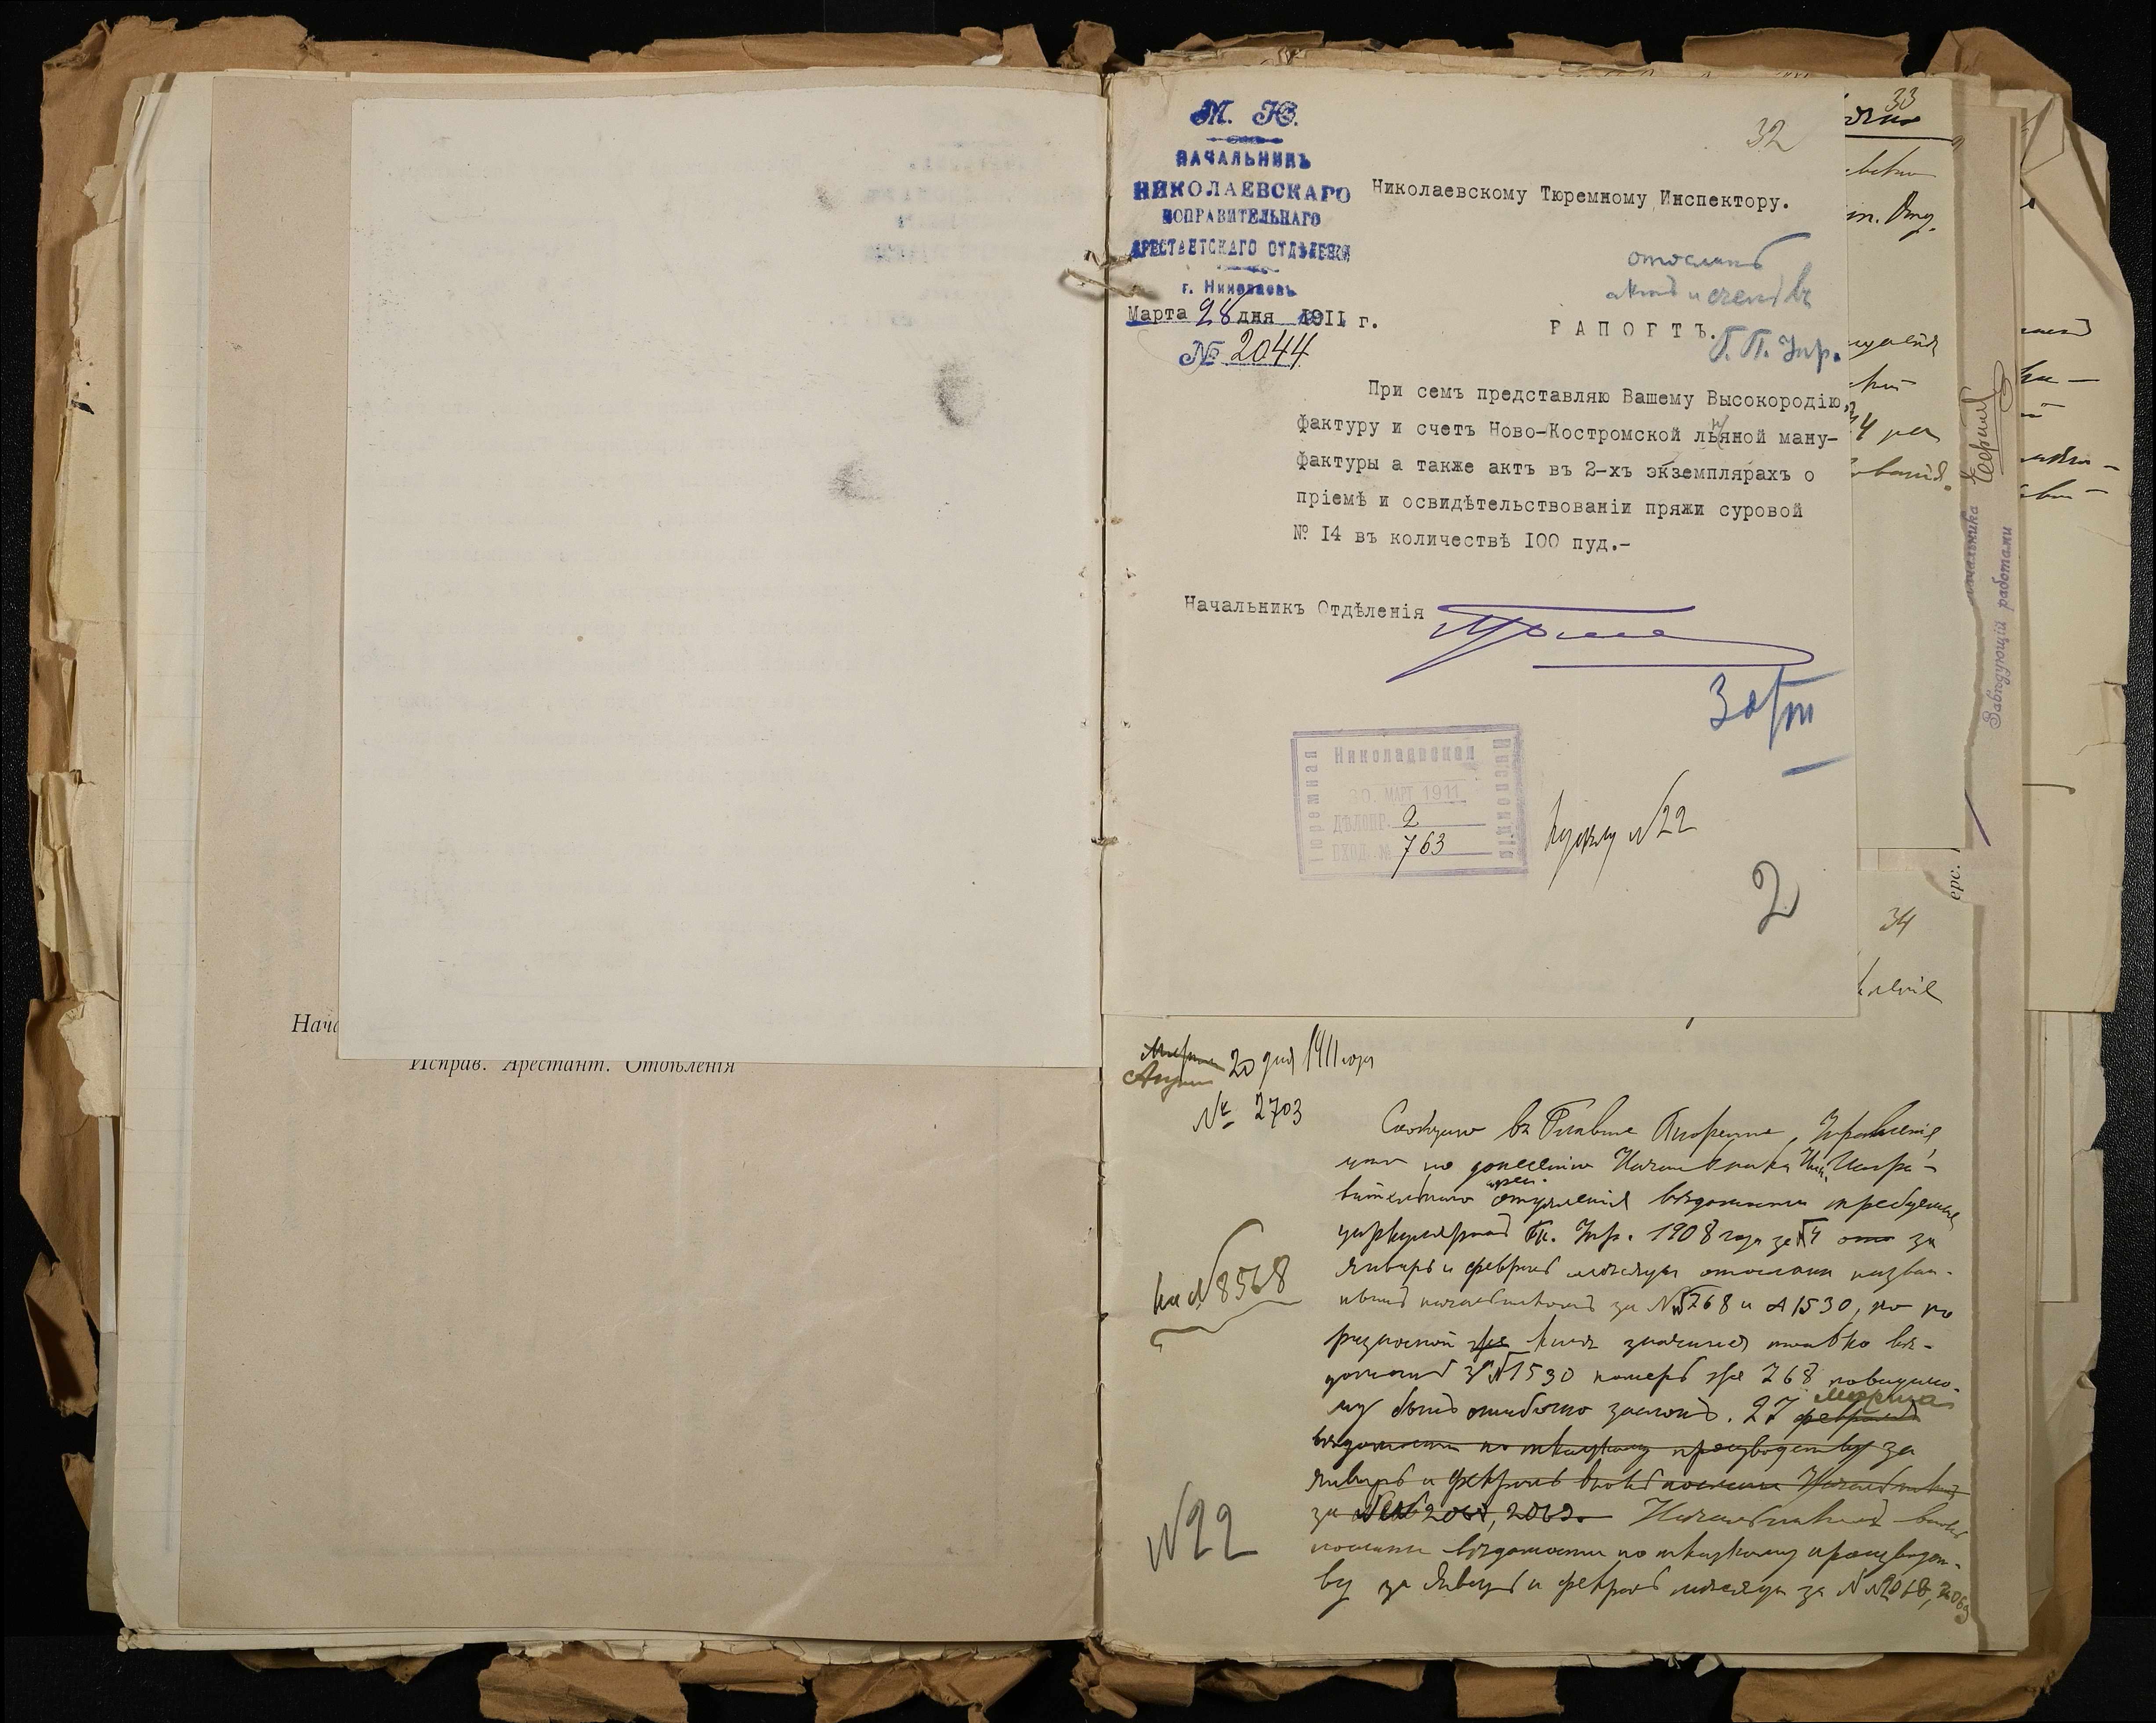 Исправ. Арестант. Отдѣленія
М. Ю.
НАЧАЛЬНИКЪ
НИКОЛАЕВСКАГО
ИСПРАВИТЕЛЬНАГО
АРЕСТАНТСКАГО ОТДѢЛЕНІЯ
г. Николаевъ
Марта 28 дня 1911 г.
№ 2044
32
Николаевскому Тюремному Инспектору.
отослать
актъ и счетъ въ
Г. Т. Упр.
РАПОРТЪ.
При семъ представляю Вашему Высокородію,
фактуру и счетъ Ново-Костромской льяной ману-
фактуры а также актъ въ 2-хъ экземплярахъ о
пріемѣ и освидѣтельствованіи пряжи суровой
№ I4 въ количествѣ I00 пуд.-
Начальникъ Отдѣленія
Николаевская
Тюремная
Инспекція
30. МАРТ 1911
ДѢЛОПР. 2
ВХОД. № 763
№22
2
33
34
начальника
Завѣдующій работами
20 дня 1911 года
№ 2703
Сообщаю въ Главное Тюремное Управленіе
что по донесенію Начальника Ник. Испра-
вительнаго арест. отдѣленія вѣдомости требуемыя
циркуляромъ Гл. Упр. 1908 года за №4 за
Январь и февраль мѣсяцы отосланы назван-
нымъ начальникомъ за №№768 и 1530, но по
разносной же книгѣ значится только вѣ-
домость за №1530 номеръ же 768 повидимо-
му былъ ошибочно заслонъ. 27 февраля Марта
вѣдомости по ткацкому производству за
Январь и февраль вновь посланы Начальникомъ
за 2068, 2069. Начальникомъ вновь
посланы вѣдомости по ткацкому производст-
ву за Январь и февраль мѣсяцы за №№2068, 2069
на №8568
№22